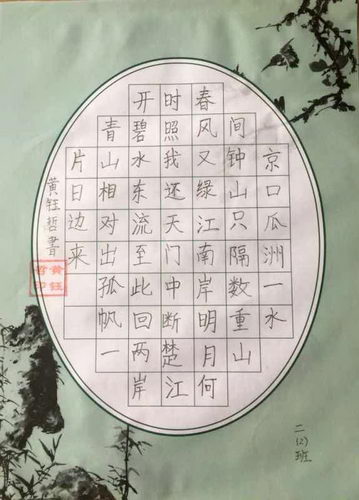 京口瓜洲一水
间钟山只隔数重山
春风又绿江南岸明月何
时照我还天门中断楚江
开碧水东流至此回两岸
青山相对出孤帆一
片日边来
黄钰哲書
黄钰
哲印
二(2)班